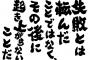 失敗とは
転んだ
ことではなく
その後に
起き上がらない
ことだ